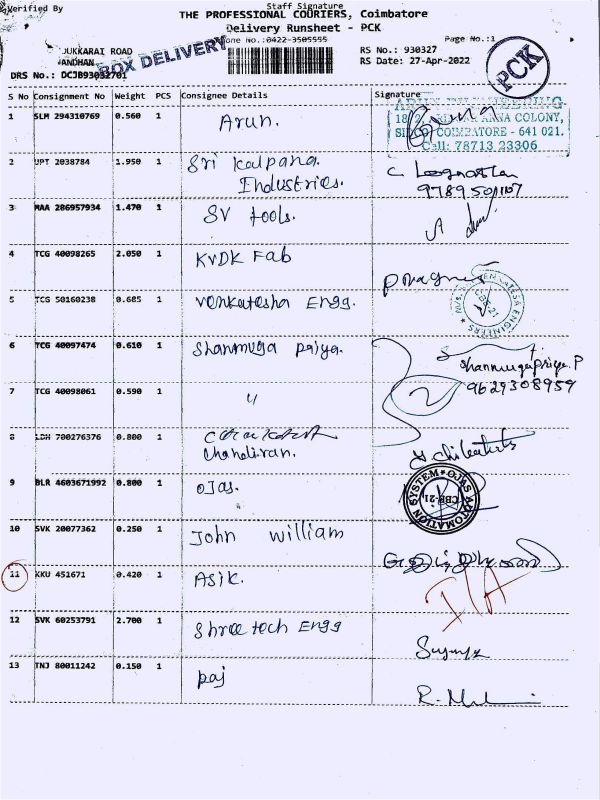 Verified By
Staff Signature
THE PROFESSIONAL COURIERS, Coimbatore
Delivery Runsheet - PCK
No.:0422-3505555
Page No.:1
JUKKARAI ROAD
BOX DELIVERY
RS No.: 930327
RS Date: 27-Apr-2022
PCK
DRS No.: DCJB93032701
S No Consignment No Weight PCS Consignee Details Signature
1 SLM 294310769 0.560 1 Arun.
ANNA COLONY,
SIDCO, COIMBATORE - 641 021.
Cell: 78713 23306
2 UPT 2038784 1.950 1 Sri Kalpana
Industries.
3 MAA 286957934 1.470 1 SV tools.
4 TCG 40098265 2.050 1 KVDK Fab
5 TCG 50160238 0.685 1 Venkatesha Engg.
CBE-21
ENGINEERS
6 TCG 40097474 0.610 1 Shanmuga Priya.
Shanmugapriya.P
9629308959
7 TCG 40098061 0.590 1 "
8 LDH 700276376 0.800 1
Chandiran.
9 BLR 4603671992 0.800 1 Ojas.
OJAS AUTOMATION SYSTEM
CBE-21
10 SVK 20077362 0.250 1 John William
11 KKU 451671 0.420 1 Asik.
12 SVK 60253791 2.700 1 Shree tech Engg
13 TNJ 80011242 0.150 1 Raj